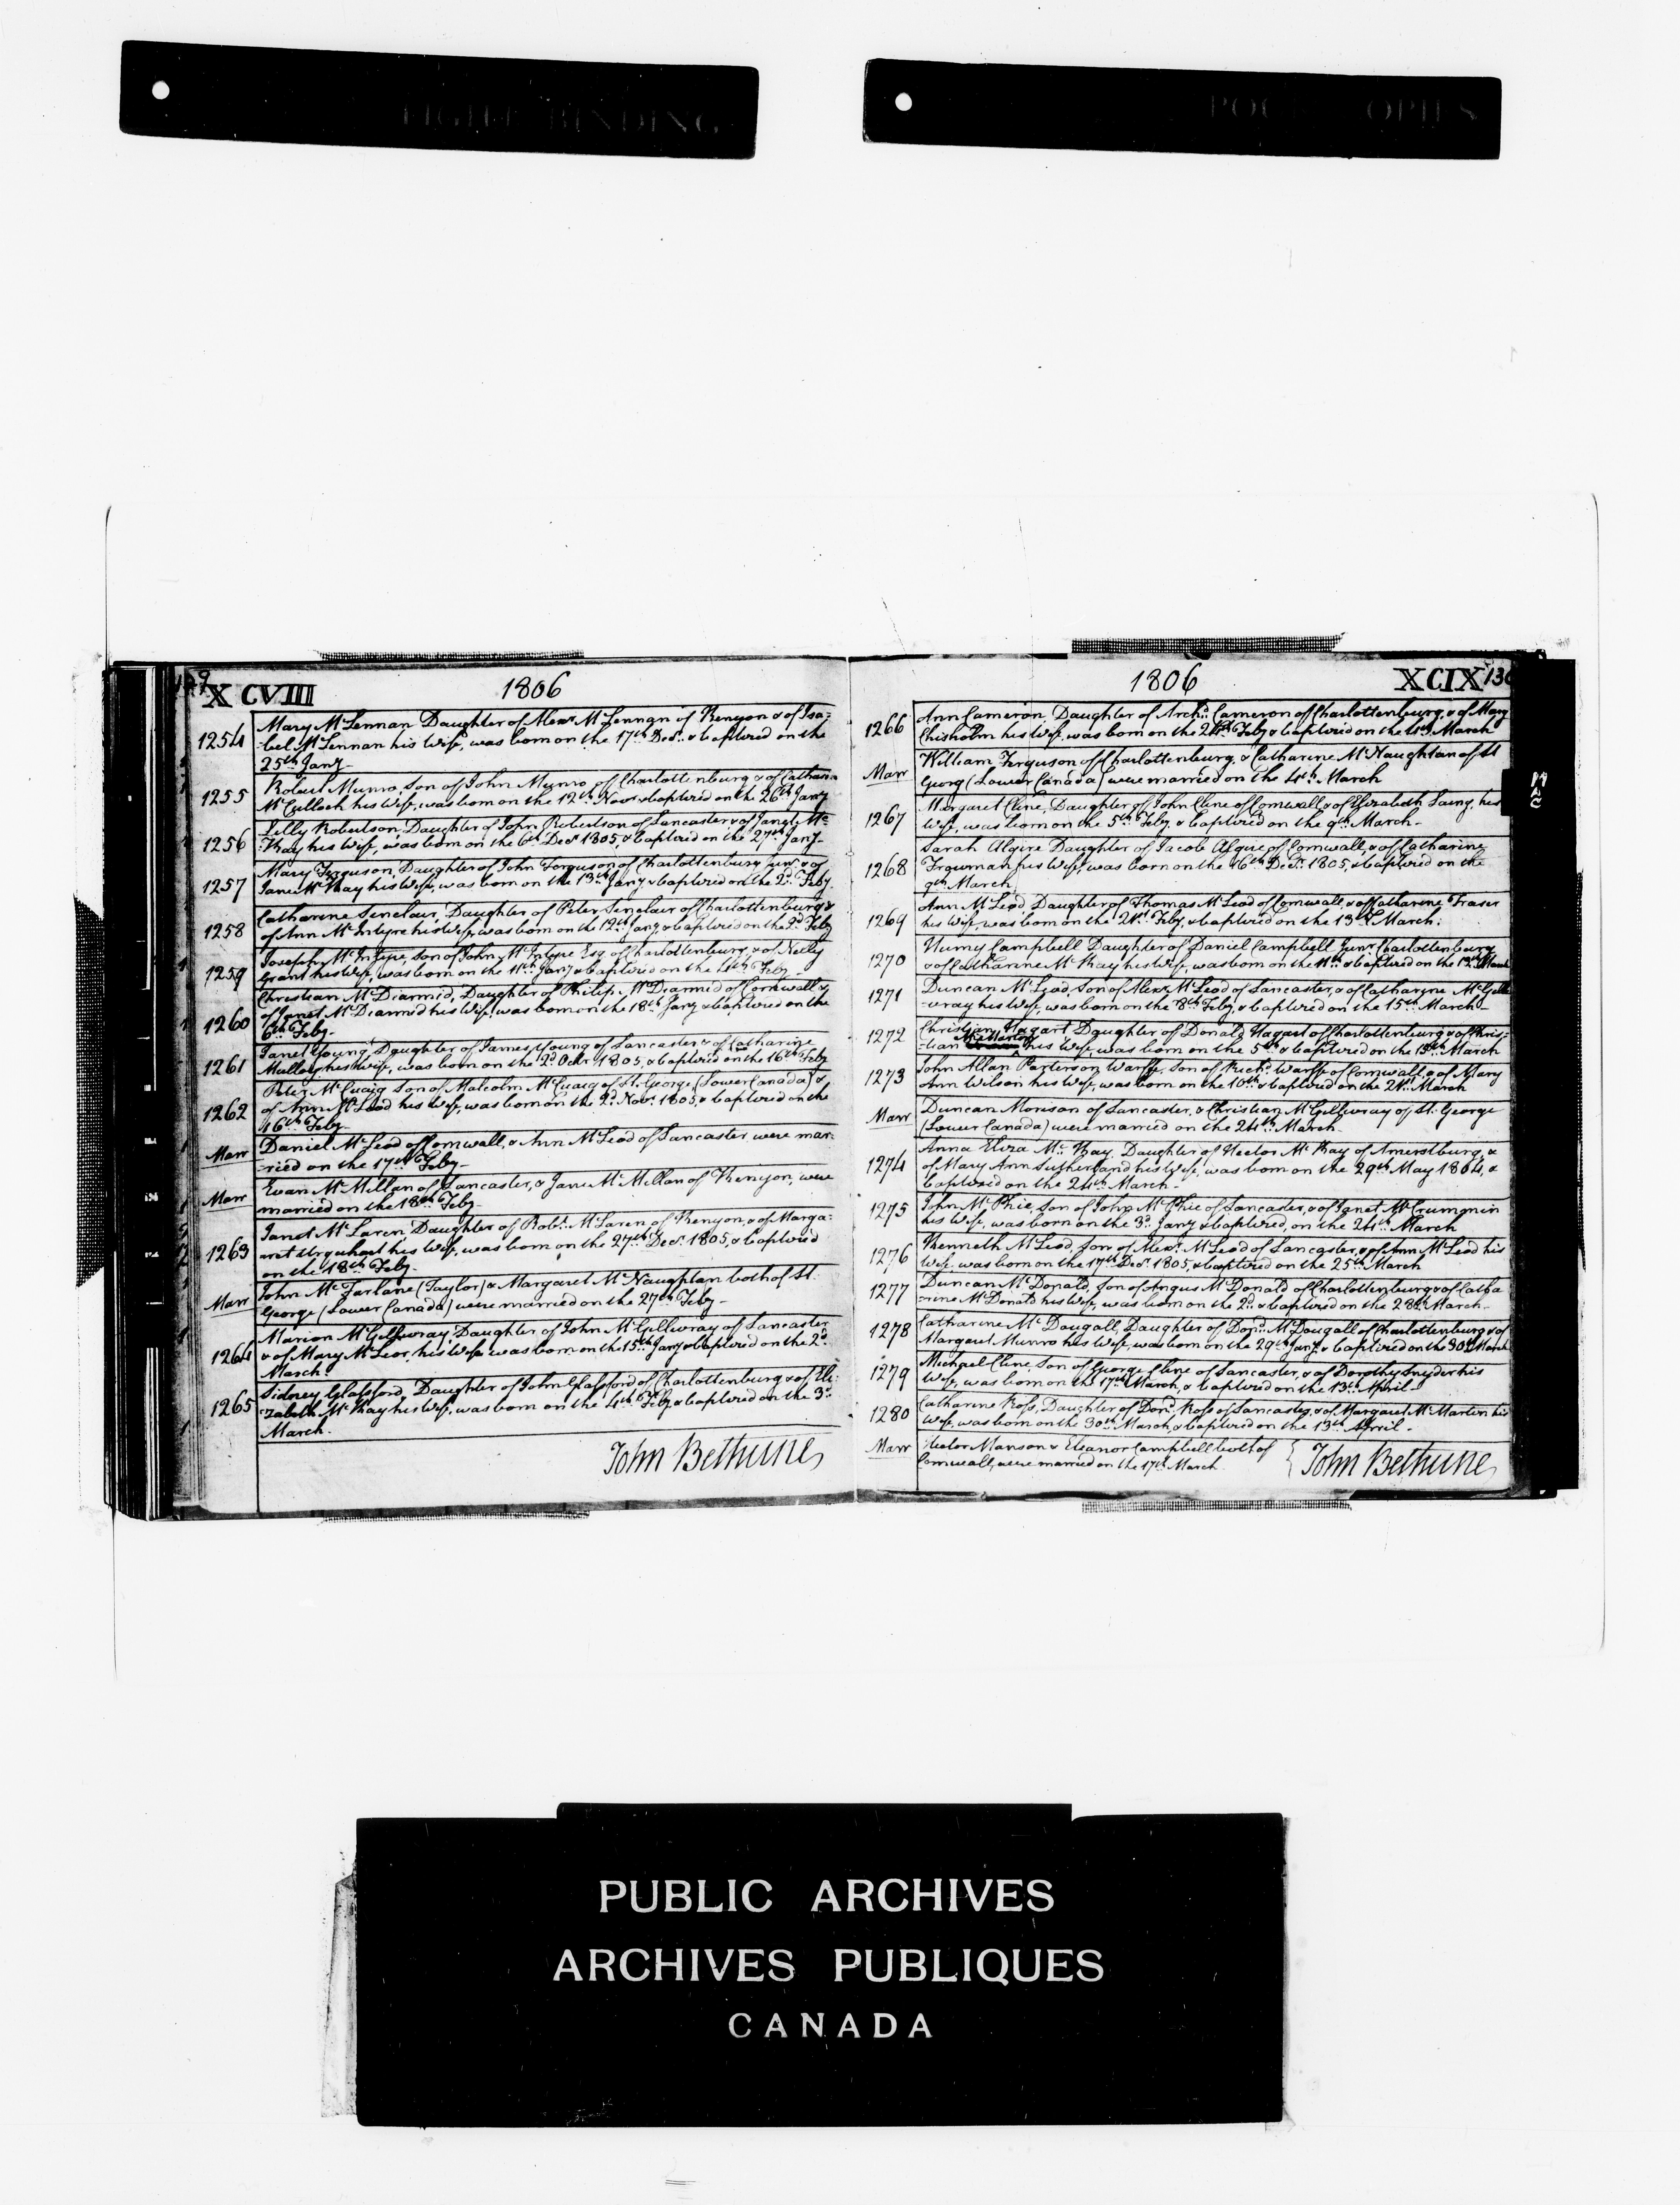 129 XCVIII 1806
1254 Mary McLennan Daughter of Alexr. McLennan of Kenyon & of Isa-
-bel McLennan his Wife, was born on the 17th Decr. & baptized on the
25th Jany.-
1255 Robert Munro, Son of John Munro of Charlottenburg & of Catharin
McCulloch his Wife, was born on the 12th Novr. & baptized on the 26th Jany
1256 Lilly Robertson Daughter of John Robertson of Lancaster & of Janet Mc
Kay his Wife, was born on the 6th Decr. 1805, & baptized on the 27th Jany-
1257 Mary Ferguson, Daughter of John Ferguson of Charlottenburg Junr. & of
Jane McKay his Wife, was born on the 13th Jany & baptized on the 2d. Feby.
1258 Catharine Sinclair, Daughter of Peter Sinclair of Charlottenburg &
of Ann McIntyre his Wife, was born on the 12th Jany & baptized on the 2d Feby
1259 Joseph McIntyre, Son of John McIntyre Esq. of Charlottenburg & of Nelly
Grant his Wife, was born on the 11th Jany & baptized on the 4th Feby-
1260 Christian McDiarmid, Daughter of Philip McDiarmid of Cornwall &
of Janet McDiarmid his Wife, was born on the 18th Jany & baptized on the
6th Feby-
1261 Janet Young Daughter of James Young of Lancaster & of Catharine
Mulloy his Wife, was born on the 2d Octr. 1805, & baptized on the 16th Feby
1262 Peter McCuaig Son of Malcolm McCuaig of St. George (Lower Canada) &
of Ann McLeod his Wife, was born on the 2d. Novr. 1805, & baptized on the
16th Feby-
Marr Daniel McLeod of Cornwall, & Ann McLeod of Lancaster were mar-
-ried on the 17th Feby-
Marr Evan McMillan of Lancaster, & Jane McMillan of Kenyon, were
married on the 18th Feby-
1263 Janet McLaren, Daughter of Robt. McLaren of Kenyon, & of Marga-
-ret Urquhart his Wife, was born on the 27th Decr. 1805, & baptized
on the 18th Feby-
Marr John McFarlane (Taylor) & Margaret McNaughtan both of St.
George (Lower Canada) were married on the 27th Feby-
1264 Marion McGillivray Daughter of John McGillivray of Lancaster
& of Mary McLeod, his Wife was born on the 15th Jany & baptized on the 2d
March.
1265 Sidney Glassford, Daughter of John Glassford of Charlottenburg & of Eli-
-zabeth McKay his Wife, was born on the 4th Feby & baptized on the 3d
March.
John Bethune
1806 XCIX 130
1266 Ann Cameron, Daughter of Archd. Cameron of Charlottenburg, & of Mary
Chisholm his Wife, was born on the 24th Feby & baptized on the 4th March
Marr William Ferguson of Charlottenburg, & Catharine McNaughtan of St
Georg (Lower Canada) were married on the 4th March
1267 Margaret Cline, Daughter of John Cline of Cornwall, & of Elizabeth Laing, his
Wife, was born on the 5th Feby. & baptized on the 9th March-
1268 Sarah Algire Daughter of Jacob Algire of Cornwall, & of Catharine
his Wife, was born on the 16th Decr. 1805, & baptized on the
9th March
1269 Ann McLeod Daughter of Thomas McLeod of Cornwall, & of Catharine Fraser
his Wife, was born on the 21st. Feby, & baptized on the 13th March.
1270 Campbell Daughter of Daniel Campbell Junr. Charlottenburg
& of Catharine McKay his Wife, was born on the 11th & baptized on the 12th March
1271 Duncan McLeod, Son of Alexr. McLeod of Lancaster, & of Catharine McGilli
-vray his Wife, was born on the 8th Feby & baptized on the 15th March-
1272 Christian Hagart Daughter of Donald Hagart of Charlottenburg & of Chris-
-tian McMartin his Wife, was born on the 5th & baptized on the 19th March
1273 John Allan Patterson Warffe, Son of Richd. Warffe of Cornwall, & of Mary
Ann Wilson his Wife, was born on the 10th & baptized on the 21st. March
Marr Duncan Morison of Lancaster, & Christian McGillivray of St. George
(Lower Canada) were married on the 24th March.
1274 Anna Eliza McKay, Daughter of Hector McKay of Amerstburg, &
of Mary Ann Sutherland his Wife, was born on the 29th May 1804, &
baptized on the 24th March-
1275 John McPhie, Son of John McPhie of Lancaster, & of Janet McCrummin
his Wife, was born on the 3d. Jany & baptized, on the 24th March
1276 Kenneth McLeod, Son of Alexr. McLeod of Lancaster, & of Ann McLeod his
Wife, was born on the 17th Decr. 1805, & baptized on the 25th March
1277 Duncan McDonald, Son of Angus McDonald of Charlottenburg & of Catha
-rine McDonald his Wife, was born on the 2d. & baptized on the 28th March-
1278 Catharine McDougall, Daughter of Dond. McDougall of Charlottenburg & of
Margaret Munro his Wife, was born on the 29th Jany. & baptized on the 30th March
1279 Michael Cline, Son of George Cline of Lancaster, & of Dorothy Snyder his
Wife, was born on the 17th March, & baptized on the 13th April-
1280 Catharine Ross, Daughter of Dond. Ross of Lancaster, & of Margaret McMartin his
Wife, was born on the 30th March, & baptized on the 13th April-
Marr Hector Manson & Eleanor Campbell both of
Cornwall, were married on the 17th March
John Bethune
PUBLIC ARCHIVES
ARCHIVES PUBLIQUES
CANADA